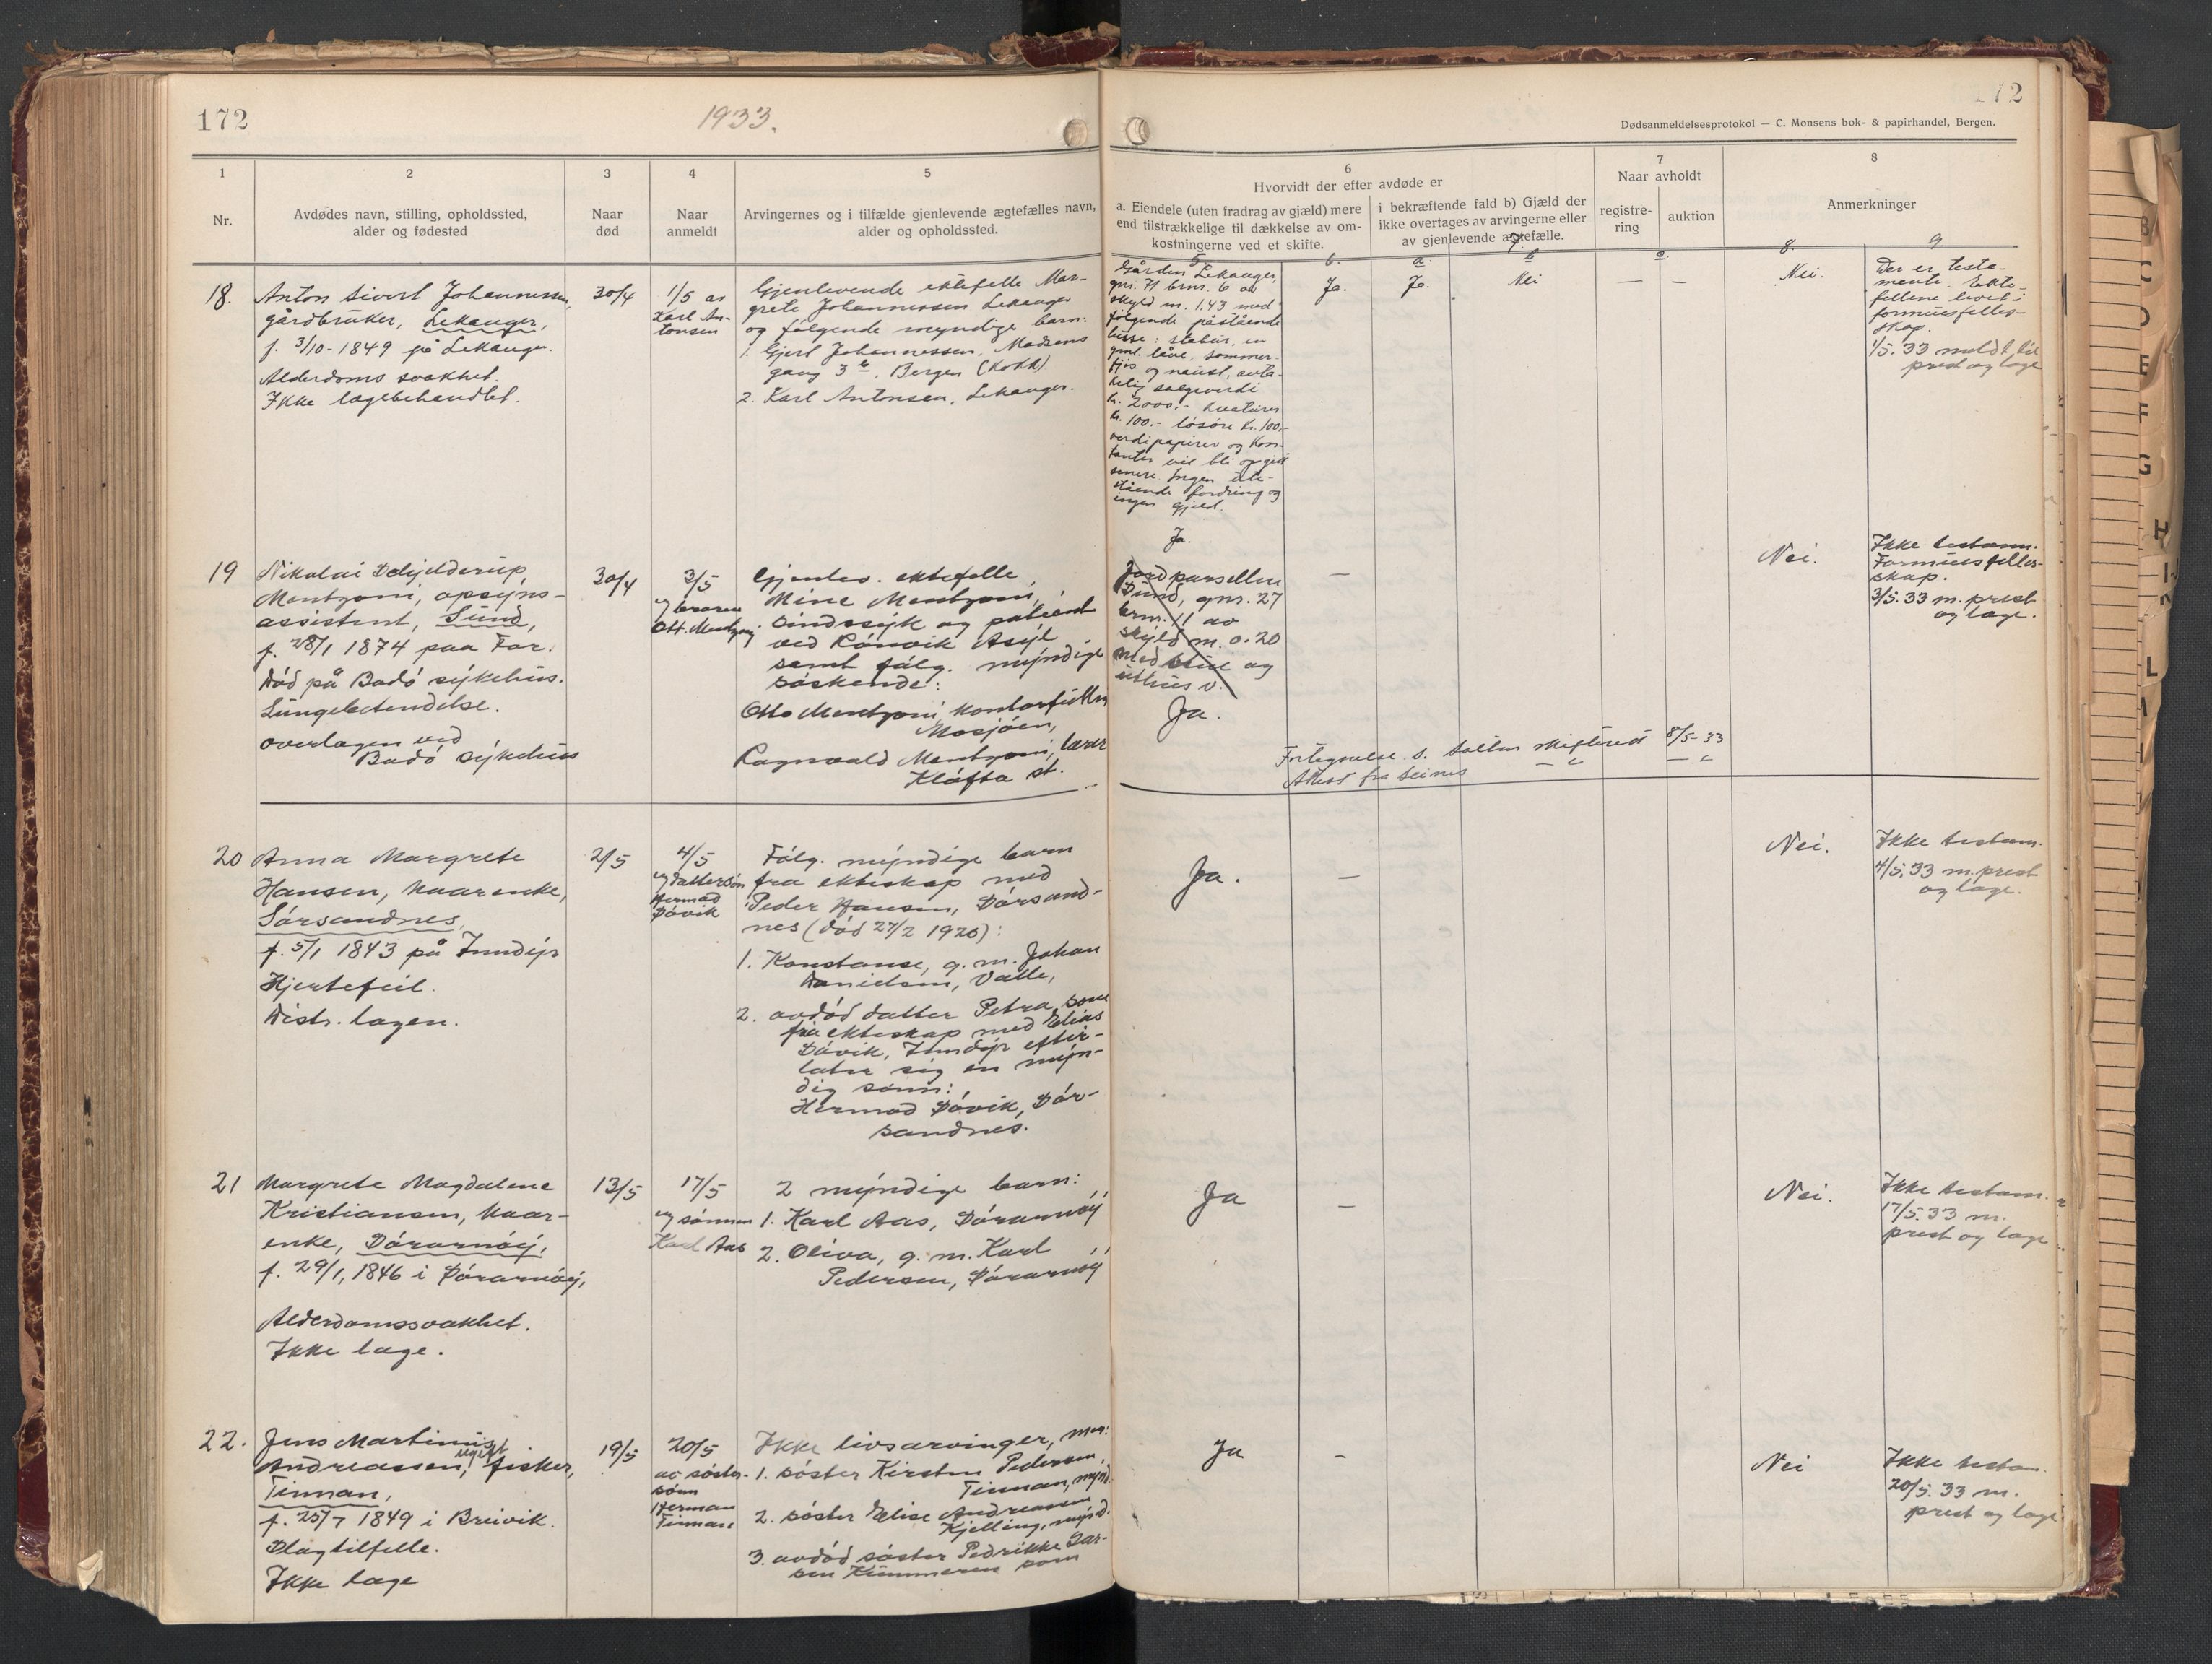 172
1933.
172
Dødsanmeldelsesprotokol — C. Monsens bok- & papirhandel, Bergen.
1
Nr.
2
Avdødes navn, stilling, opholdssted,
alder og fødested
3
Naar
død
4
Naar
anmeldt
5
Arvingernes og i tilfælde gjenlevende ægtefælles navn,
alder og opholdssted.
6
Hvorvidt der efter avdøde er
a. Eiendele (uten fradrag av gjæld) mere
end tilstrækkelige til dækkelse av om-
kostningerne ved et skifte.
i bekræftende fald b) Gjæld der
ikke overtages av arvingerne eller
av gjenlevende ægtefælle.
7
Naar avholdt
registre-
ring
auktion
8
Anmerkninger
5. 6. a. 7. b 8. 9
18.
Anton Sivert Johannessen,
gårdbruker, Lekanger,
f. 3/10-1849 på Lekanger.
Alderdoms svakhet.
Ikke lægebehandlet.
30/4
1/5 av
Karl An-
tonsen
Gjenlevende ektefelle Mar-
grete Johannessen Lekanger
og følgende myndige barn:
1. Gjert Johannessen, Madsens
gang 3 b, Bergen (kokk)
2. Karl Antonsen, Lekanger.
Gården Lekanger,
gnr. 71 brnr. 6 av
skyld m. 1.43 med
følgende påstående
husse: stabur, en
gml. låve, sommer-
fjøs og naust, anta-
kelig salgsverdi
kr. 2000,- kreaturer
kr. 100.- løsøre kr. 100,-
verdipapirer og kon-
tanter vil bli opgitt
senere Ingen ute-
stående fordring og
ingen gjeld.
Ja.
Ja.
Ja.
Nei
—
—
Nei.
Der er testa-
mente. Ekte-
fellene levet i
formuesfelles-
skap.
1/5.33 meldt til
prest og læge
19
Nikolai Dehjelderup
Mentzoni, opsyns-
assistent, Sund,
f. 28/1 1874 paa For.
Død på Bodø sykehus.
Lungebetendelse.
overlægen ved
Bodø sykehus
30/4
3/5
og broren
Ott. Mentzoni
Gjenlev. ektefelle
Mine Mentzoni,
sindssyk og patient
ved Rønvik Asyl
samt følg. myndige
søskende:
Otto Mentzoni, kontorfullm.
Mosjøen,
Ragnvald Mentzoni, lærer
Kløfta st.
Jordparsellen
Sund, gnr. 27
brnr. 11 av
skyld m. 0.20
med stue og
uthus v.
Ja.
—
Nei.
Ikke testam.
Formuesfelles-
skap.
3/5.33 m. prest
og læge.
Fortegnelse s. Salten skifterett 8/5-33
Attest fra Seines — " — "
20
Anna Margrete
Hansen, kaarenke,
Sørsandnes,
f. 5/1 1843 på Inndyr
Hjertefeil.
Distr. lægen.
2/5
4/5
og dattersøn
Hermod
Døvik
Følg. myndige barn
fra ekteskap med
Peder Hansen, Sørsand-
nes (død 27/2 1920):
1. Konstanse, g. m. Johan
Danielsen, Valle,
2. avdød datter Petra, som
fra ekteskap med Elias
Døvik, Inndyr efter-
later sig en myn-
dig sønn:
Hermod Døvik, Sør-
sandnes.
Ja.
—
Nei.
Ikke testam.
4/5.33 m. prest
og læge.
21
Margrete Magdalene
Kristiansen, kaar-
enke, Sørarnøy,
f. 29/1, 1846 i Sørarnøy,
Alderdomssvakhet.
Ikke læge.
13/5
17/5
og sønnen
Karl Aas
2 myndige barn:
1. Karl Aas, Sørarnøy
2. Oliva, g. m. Karl
Pedersen, Sørarnøy
Ja
—
Nei.
Ikke testam.
17/5.33 m.
prest og læge
22.
Jens Martinus
Andreassen, ugift fisker,
Finnan,
f. 25/7 1849 i Breivik.
Slagtilfelle.
Ikke læge
19/5
20/5
av søster-
sønn
Herman
Finnan
Ikke livsarvinger, men:
1. søster Kirsten Pedersen,
Finnan, mynd.
2. søster Elise Andreassen
Kjelling, mynd.
3. avdød søster Pedrikke Lar-
sen som
Ja
—
Nei
Ikke testam.
20/5.33 m.
prest og læge
B
C
D
E
F
G
H
L